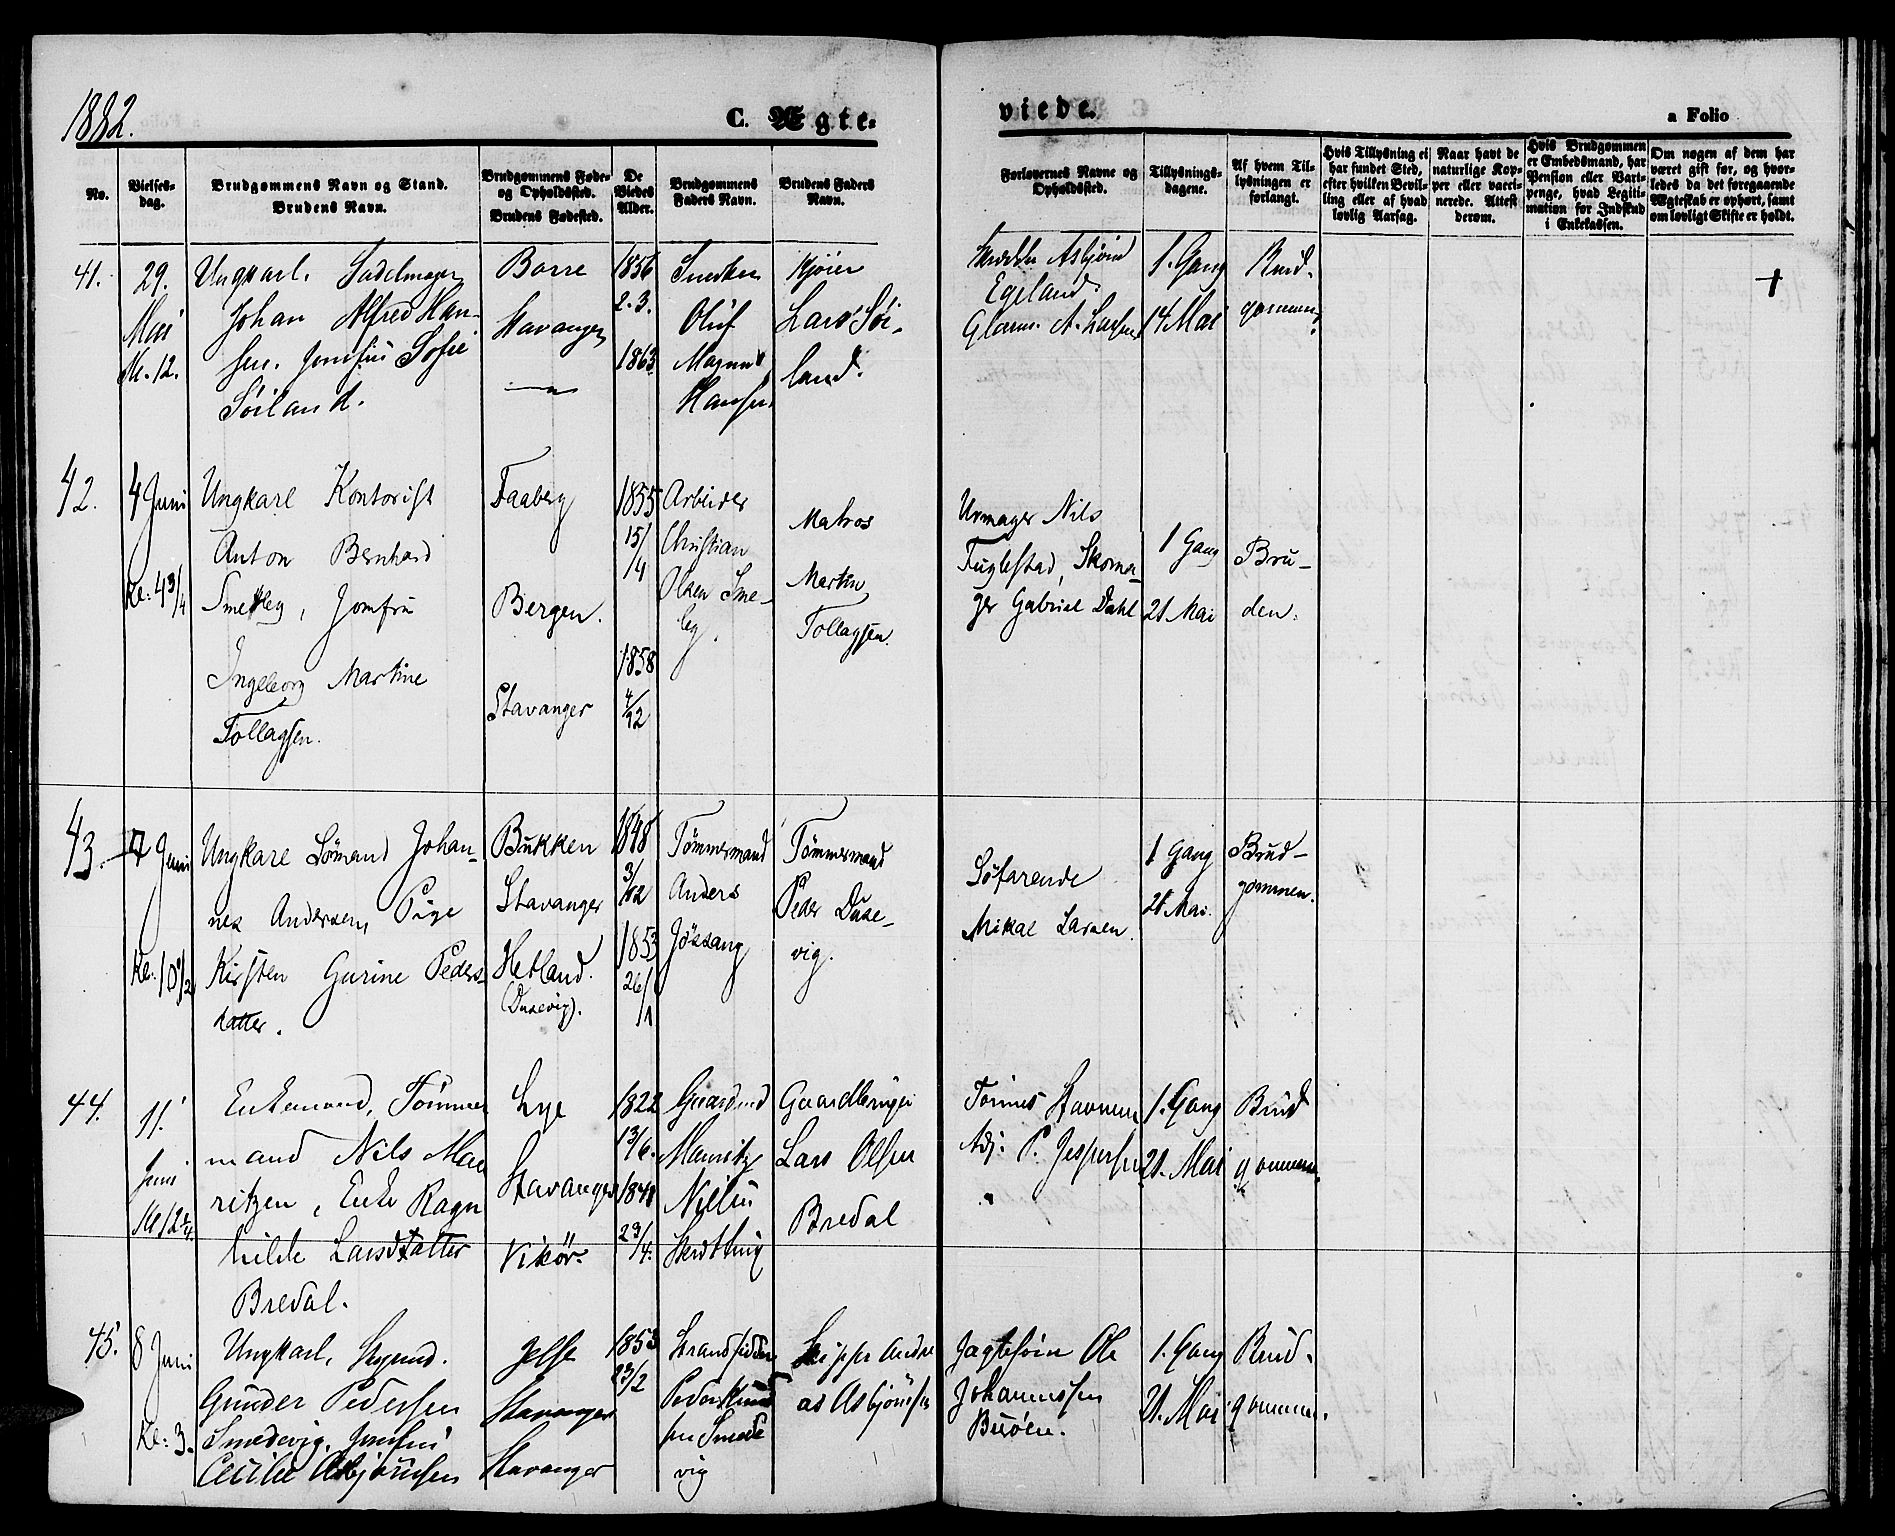 1882.
C. Ægte-
viede.
a Folio
No.
Vielses-
dag.
Brudgommens Navn og Stand.
Brudens Navn.
Brudgommens Føde-
og Opholdssted.
Brudens Fødested.
De
Viedes
Alder.
Brudgommens
Faders Navn.
Brudens Faders
Navn.
Forlovernes Navne og
Opholdssted.
Tillysnings-
dagene.
Af hvem Til-
lysningen er
forlangt.
Hvis Tillysning ei
har fundet Sted,
efter hvilken Bevil-
ling eller af hvad
lovlig Aarsag.
Naar havt de
naturlige Kop-
per eller vacci-
nerede. Attest
derom.
Hvis Brudgommen
er Embedsmand, har
Pension eller Vart-
penge, hvad Legiti-
mation for Indskud
i Enkekassen.
Om nogen af dem har
været gift før, og hvor-
ledes da det foregaaende
Ægteskab er ophørt, samt
om lovligt Skifte er holdt.
41.
29.
Mai
Kl. 12.
Ungkarl. Sadelmager
Johan Alfred Han-
sen. Jomfru Sofie
Søiland.
Borre
Stavanger
1856
2.3.
1863
Oluf
Magnus
Hansen
Lars Søi-
land.
Asbjørn
Egeland.
A. Larsen
1. Gang
14 Mai
Brud-
gommen
42.
4 Juni
Kl: 4 3/4
Ungkarl Kontorist
Anton Bernhard
Smeby, Jomfru
Ingeborg Martine
Tollagsen.
Faaberg
Bergen.
Stavanger
1855
15/
/4
1858
4/12
Arbeider
Christian
Olsen Sme-
by.
Matros
Martin
Tollagsen.
Urmager Nils
Fuglestad, Skoma-
ger Gabriel Dahl
1 Gang
21 Mai
Bru-
den.
43.
7 Juni
Kl. 10 1/2
Ungkarl Sømand Johan-
nes Andersen, Pige
Kirsten Gurine Peders-
datter.
Bukken
Stavanger
Hetland.
(Dusevig).
1848
3/12
1853
26/
/1
Tømmermand
Anders
Jøssang
Tømmermand
Peder Duse-
vig.
Søfarende
Mikal Larsen.
1 Gang
21 Mai.
Brud-
gommen.
44.
11.
Juni
Enkemand, Tømmer
mand Nils Mau
ritzen, Enke Ragn
hilde Larsdatter
Bredal.
Lye
Stavanger
Vikør.
1822
13/6.
1848
23/4.
Gaardmd
Mauritz
Nilsen
Gaardbruger
Lars Olsen
Bredal
Tønnes
P. Jespersen
1. Gang
21. Mai
Brud
gommen.
45.
8 Juni
Kl: 3.
Ungkarl,
Gunder Pedersen
Smedevig, Jomfru
Cecilie Asbjørnsen
Jelse
Stavanger
Stavanger
1853
23/2
Strandsidder
Smede
vig
Skipper Andre
as Asbjørnsen
Ole
Johannessen
1. Gang
21. Mai
Brud-
gommen.